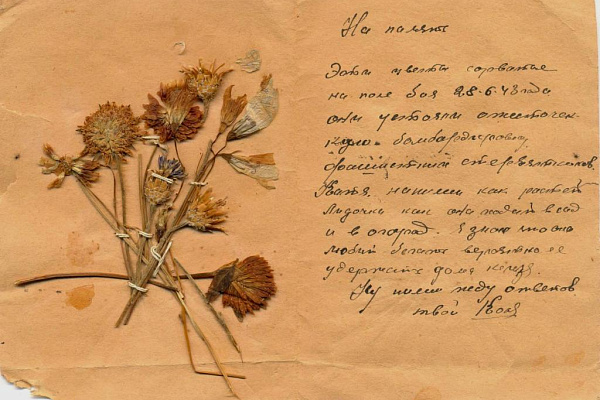 На память
Эти цветы сорватые
на поле боя 28.6.43 года
они устояли ожесточен-
ную бомбардировку
фашистких стервятников.
Катя напиши как растет
Лидочка как она ходит в сад
и в огород. Я знаю что она
любит бегать вероятно ее
удержать дома нельзя.
Ну пиши жду ответов
твой Коля